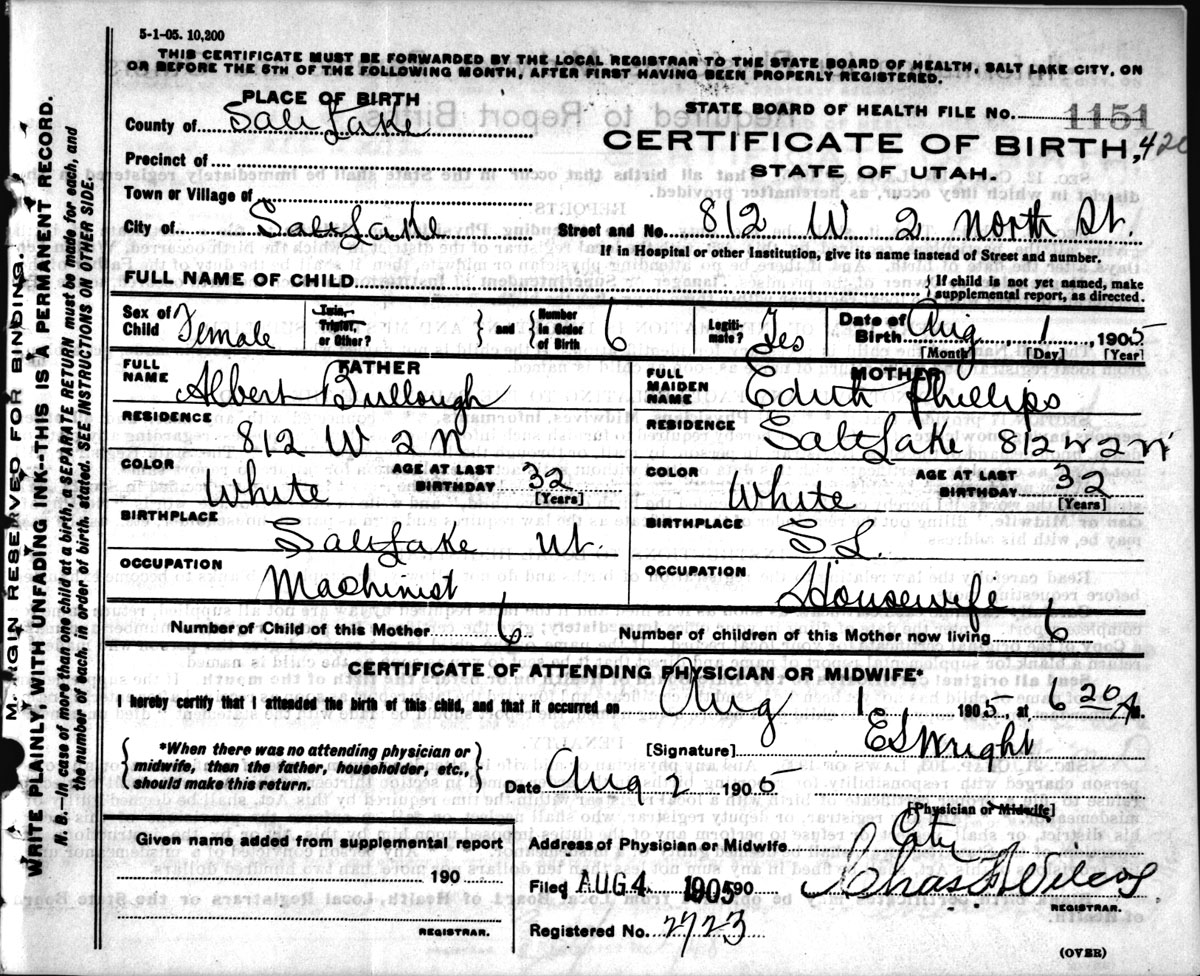 5-1-05. 10,200
THIS CERTIFICATE MUST BE FORWARDED BY THE LOCAL REGISTRAR TO THE STATE BOARD OF HEALTH, SALT LAKE CITY, ON
OR BEFORE THE 5TH OF THE FOLLOWING MONTH, AFTER FIRST HAVING BEEN PROPERLY REGISTERED.
PLACE OF BIRTH
County of Salt Lake
STATE BOARD OF HEALTH FILE No. 1151
CERTIFICATE OF BIRTH, 420
STATE OF UTAH.
Precinct of
Town or Village of
City of Salt Lake
Street and No. 812 W 2 North St.
If in Hospital or other Institution, give its name instead of Street and number.
FULL NAME OF CHILD
If child is not yet named, make
supplemental report, as directed.
Sex of Child Female
Twin, Triplet, or Other?
and Number in Order of Birth 6
Legitimate? Yes
Date of Birth Aug 1 1905
[Month] [Day] [Year]
FATHER
FULL NAME Albert Bullough
RESIDENCE
812 W 2 N
COLOR White
AGE AT LAST BIRTHDAY 32
[Years]
BIRTHPLACE
Salt Lake Ut.
OCCUPATION
Machinist
MOTHER
FULL MAIDEN NAME Edith Phillips
RESIDENCE Salt Lake 812 n 2 n
COLOR White
AGE AT LAST BIRTHDAY 32
[Years]
BIRTHPLACE
S L.
OCCUPATION
Housewife
Number of Child of this Mother 6
Number of children of this Mother now living 6
CERTIFICATE OF ATTENDING PHYSICIAN OR MIDWIFE*
I hereby certify that I attended the birth of this child, and that it occurred on Aug 1 1905, at 6 20 A M.
*When there was no attending physician or
midwife, then the father, householder, etc.,
should make this return.
[Signature] E S Wright
Date Aug 2 1905
[Physician or Midwife]
Given name added from supplemental report
190
REGISTRAR.
Address of Physician or Midwife City
Filed AUG 4 1905 190
REGISTRAR.
Registered No. 2723
(OVER)
MARGIN RESERVED FOR BINDING.
WRITE PLAINLY, WITH UNFADING INK--THIS IS A PERMANENT RECORD.
N. B.--In case of more than one child at a birth, a SEPARATE RETURN must be made for each, and
the number of each, in order of birth, stated. SEE INSTRUCTIONS ON OTHER SIDE.